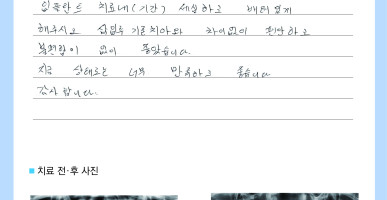 임플란트 치료내(기간) 세심하고 배려깊게
해주시고 심플란트 기존치아와 차이없이 편안하고
불편함이 없이 좋았습니다.
지금 상태로는 너무 만족하고 좋습니다
감사합니다.
치료 전·후 사진